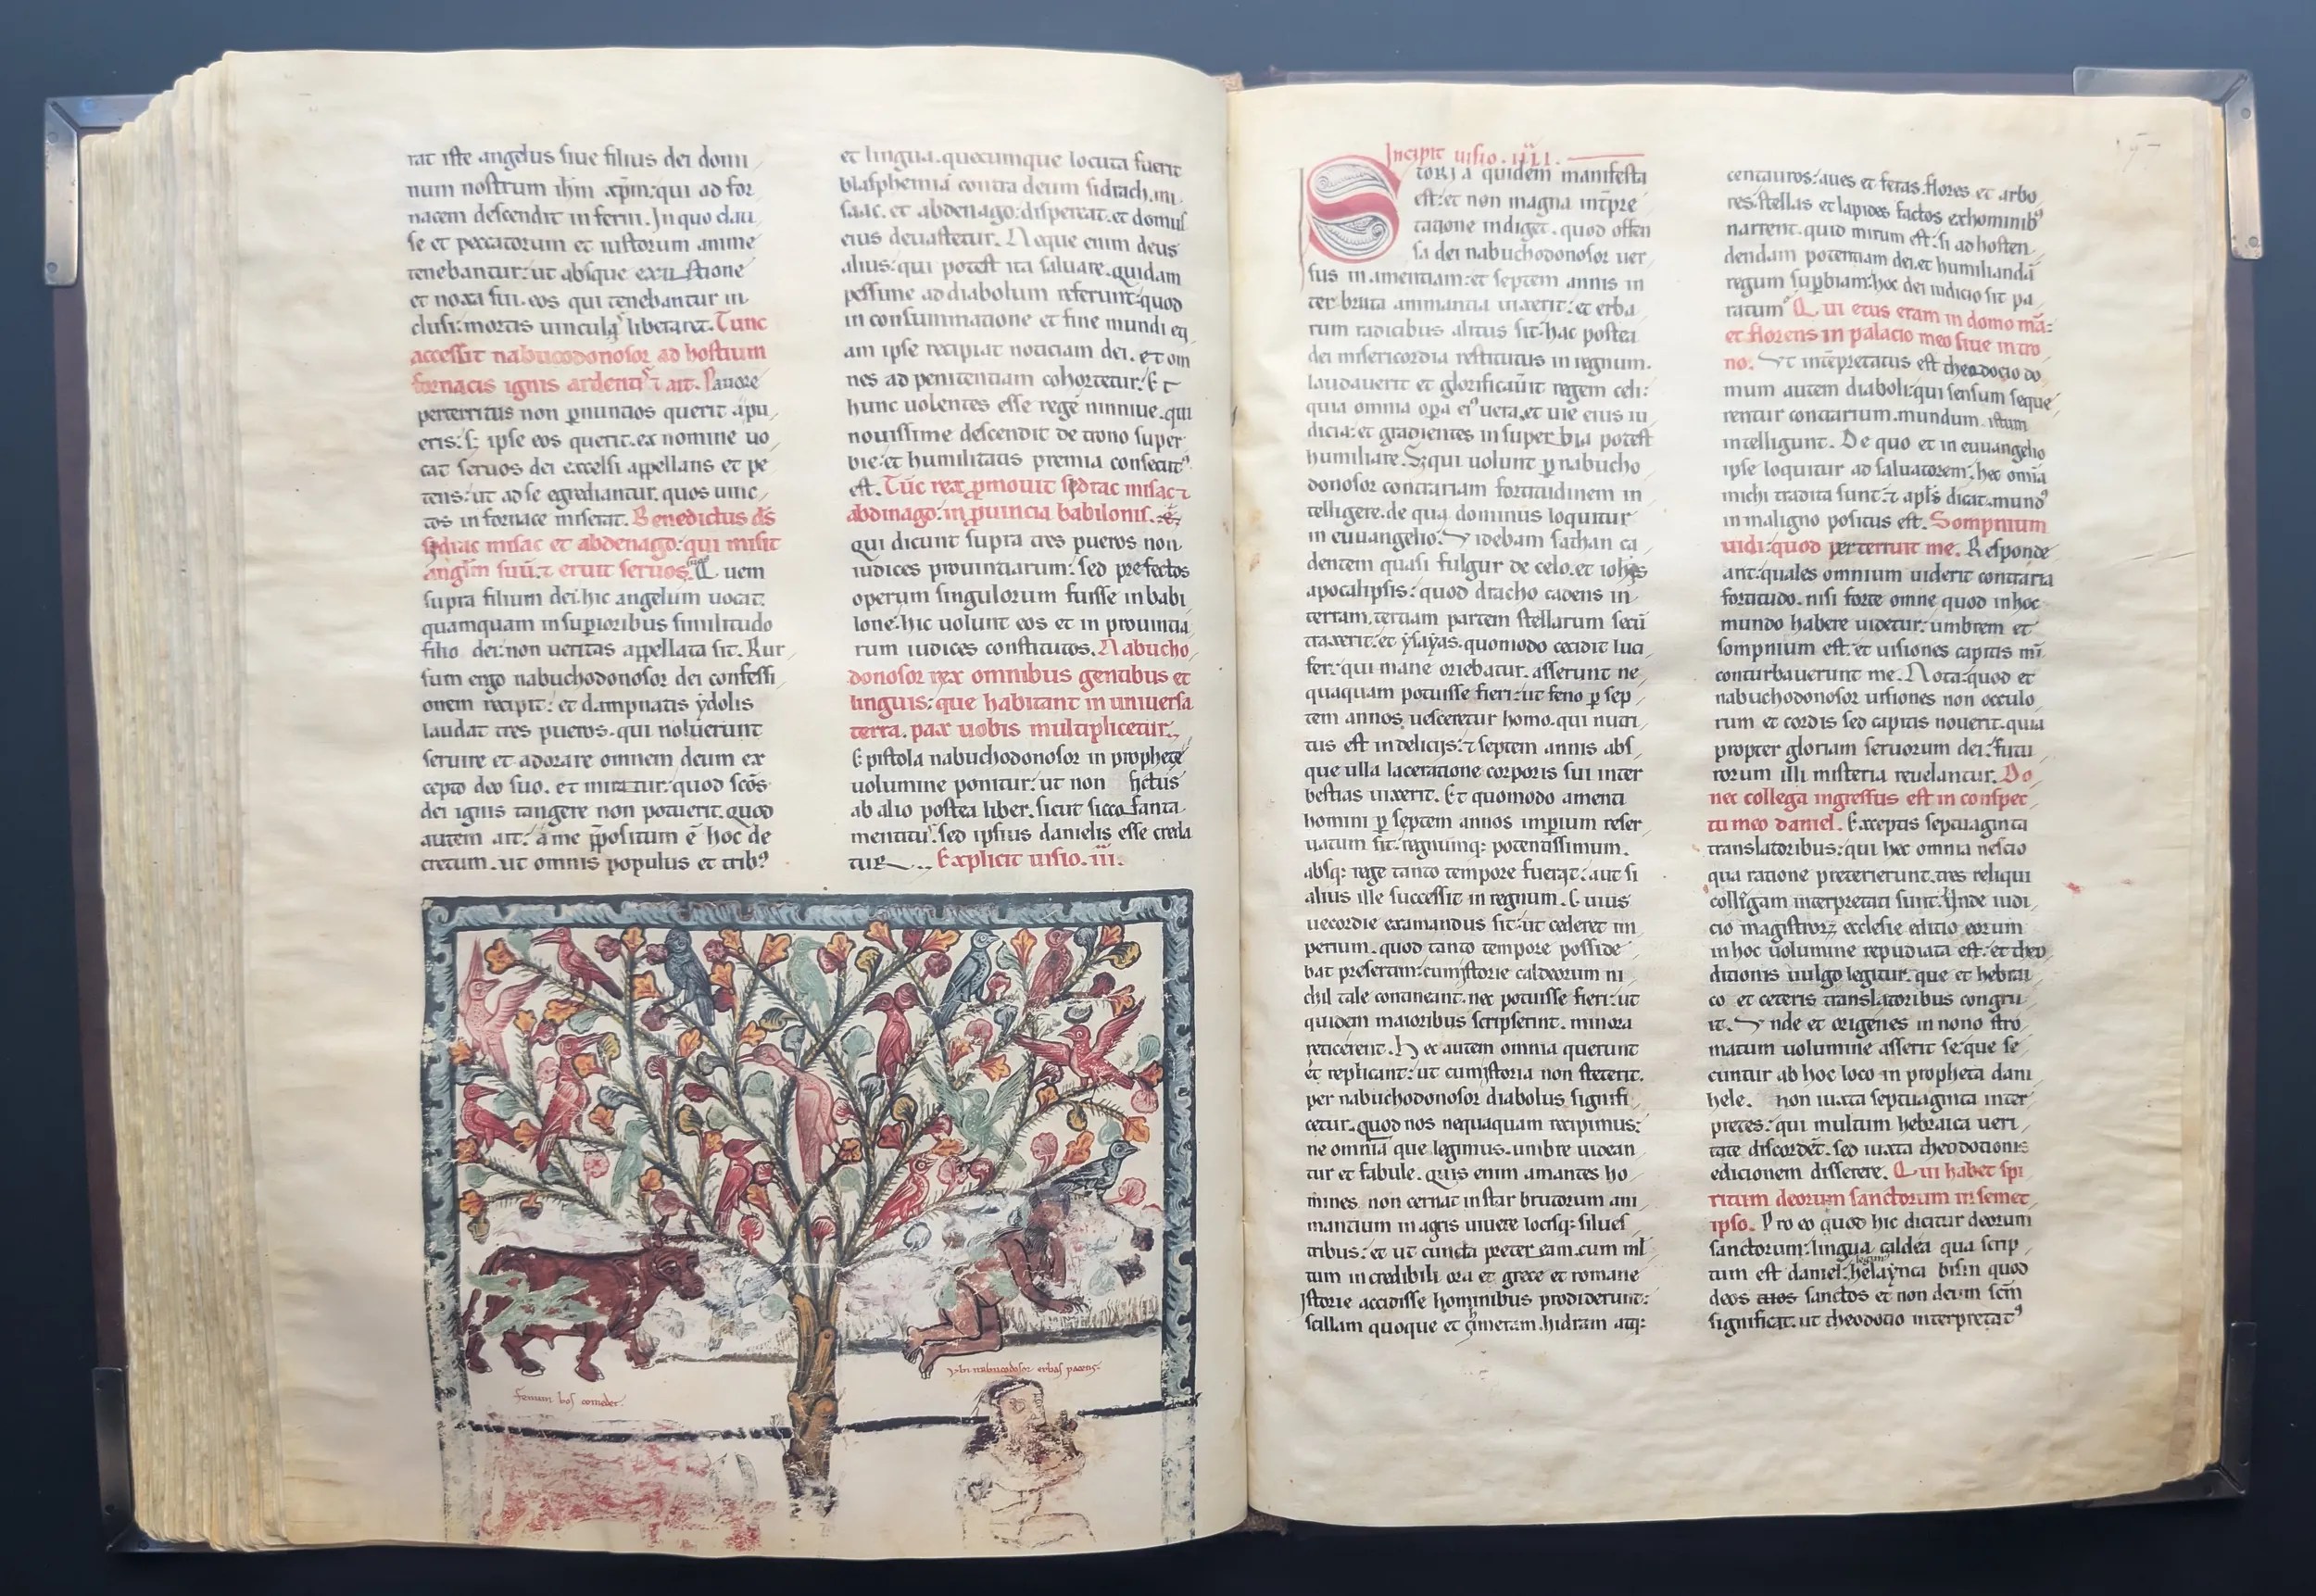 rat iste angelus siue filius dei domi
num nostrum ihm xpm: qui ad for
nacem descendit inferni. In quo clau
se et peccatorum et iustorum anime
tenebantur: ut absque exustione
et noxa sui. eos qui tenebantur in
clusi: mortis uinculis liberaret. Tunc
accessit nabucodonosor ad hostium
fornacis ignis ardentis ⁊ ait. Pauore
perterritus non p nuntios querit a pu
eris: s; ipse eos querit. ex nomine uo
cat seruos dei excelsi appellans et pe
tens: ut ad se egrediantur. quos uinc
tos in fornace miserat. Benedictus ds
sidrac misac et abdenago: qui misit
anglm suu. ⁊ eruit seruos. Quem
supra filium dei: hic angelum uocat.
quamquam in superioribus similitudo
filio dei: non ueritas appellata sit. Rur
sum ergo nabuchodonosor dei confessi
onem recipit: et dampnatis ydolis
laudat tres pueros. qui noluerunt
seruire et adorare omnem deum ex
cepto deo suo. et miratur: quod scos
dei ignis tangere non potuerit. quod
autem ait: a me ppositum e hoc de
cretum. ut omnis populus et trib9
et lingua. quecumque locuta fuerit
blasphemia contra deum sidrach. mi
saac. et abdenago: dispereat. et domus
eius deuastetur. Neque enim deus
alius: qui potest ita saluare. quidam
pessime ad diabolum referunt: quod
in consummatione et fine mundi eti
am ipse recipiat noticiam dei. et om
nes ad penitentiam cohortetur: Et
hunc uolentes esse rege niniue. qui
nouissime descendit de trono super
bie: et humilitatis premia consecut9
est. Tuc rex pmouit sidrac misac ⁊
abdinago: in puincia babilonis.
qui dicunt supra tres pueros non
iudices prouintiarum: sed prefectos
operum singulorum fuisse in babi
lone: hic uolunt eos et in prouintia
rum iudices constitutos. Nabucho
donosor rex omnibus gentibus et
linguis: que habitant in uniuersa
terra. pax uobis multiplicetur.
Epistola nabuchodonosor in prophete
uolumine ponitur: ut non fictus
ab alio postea liber. sicut sicofanta
mentitur. sed ipsius danielis esse creda
tur. Explicit uisio. iii.
fenum bos comedet.
ybi nabucodosor erbas pacens.
Incipit uisio. iiii.
Storia quidem manifesta
est: et non magna intpre
tatione indiget. quod offen
sa dei nabuchodonosor uer
sus in amentiam: et septem annis in
ter bruta animantia uixerit: et erba
rum radicibus alitus sit: hac postea
dei misericordia restitutus in regnum.
laudauerit et glorificauit regem celi:
quia omnia opa ei9 uera. et uie eius iu
dicia: et gradientes in superbia potest
humiliare. S; qui uolunt p nabucho
donosor contrariam fortitudinem in
telligere. de qua dominus loquitur
in euuangelio: Videbam sathan ca
dentem quasi fulgur de celo. et iohes
apocalipsis: quod dracho cadens in
terram. tertiam partem stellarum secu
traxerit: et ysayas. quomodo cecidit luci
fer: qui mane oriebatur. asserunt ne
quaquam potuisse fieri: ut feno p sep
tem annos uesceretur homo. qui nutri
tus est in delicijs: ⁊ septem annis abs
que ulla laceratione corporis sui inter
bestias uixerit. Et quomodo amenti
homini p septem annos imperium reser
uatum sit: regnumq; potentissimum.
absq; rege tanto tempore fuerit: aut si
alius ille successit in regnum. Cuius
uecordie examandus sit: ut cederet im
perium. quod tanto tempore posside
bat presertim: cum istorie caldeorum ni
chil tale contineant. nec potuisse fieri: ut
quidem maioribus scripserint. minora
reticerent. Hec autem omnia querunt
et replicant: ut cum istoria non steterit.
per nabuchodonosor diabolus signifi
cetur. quod nos nequaquam recipimus:
ne omnia que legimus. umbre uidean
tur et fabule. Quis enim amantes ho
mines. non cernat instar brutorum ani
mantium in agris uiuere locisq; silues
tribus: et ut cuncta preter eam. cum ml
tum incredibili ora et grece et romane
Istorie accidisse hominibus prodiderunt:
scillam quoque et chimeram. hidram atq;
centauros: aues et feras. flores et arbo
res. stellas et lapides factos ex hominib9
narrent. quid mirum est: si ad hosten
dendam potentiam dei. et humilianda
regum superbiam: hoc dei iudicio sit pa
ratum. Qui etus eram in domo ma:
et florens in palacio meo siue in tro
no. Vt intpretatus est theodocio do
mum autem diaboli: qui sensum seque
rentur contrarium. mundum. istum
intelligunt. De quo et in euuangelio
ipse loquitur ad saluatorem: hec omia
michi tradita sunt: ⁊ apls dicat. mund9
in maligno positus est. Sompnium
uidi: quod perterruit me. Responde
ant: quales omnium uiderit contraria
fortitudo. nisi forte omne quod in hoc
mundo habere uidetur: umbrem et
sompnium est: et uisiones capitis mi
conturbauerunt me. Nota: quod et
nabuchodonosor uisiones non occulo
rum et cordis sed capitis nouerit. quia
propter gloriam seruorum dei: futu
rorum illi misteria reuelantur. Do
nec collega ingressus est in conspec
tu meo daniel. Exceptis septuaginta
translatoribus: qui hec omnia nescio
qua ratione preterierunt. tres reliqui
collegam interpretati sunt: Vnde iudi
cio magistrorz ecclesie editio eorum
in hoc uolumine repudiata est: et theo
ditionis uulgo legitur. que et hebrai
co et ceteris translatoribus congru
it. Vnde et origenes in nono stro
matum uolumine asserit se: que se
cuntur ab hoc loco in propheta dani
hele. non iuxta septuaginta inter
pretes: qui multum hebraica ueri
tate discordet. sed iuxta theodotionis
edicionem disserere. Qui habet spi
ritum deorum sanctorum in semet
ipso. Pro eo quod hic dicitur deorum
sanctorum: lingua caldea qua scrip
tum est daniel: helaynca bisin quod
deos tuos sanctos et non deum scm
significat. ut theodotio interpretat9